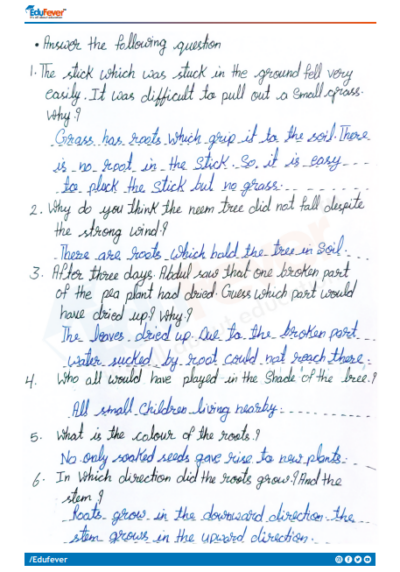 EduFever
• Answer the following question
1. The stick which was stuck in the ground fell very
easily. It was difficult to pull out a small grass.
Why?
Grass has roots which grip it to the soil. There
is no root in the stick. So it is easy
to pluck the stick but no grass.
2. Why do you think the neem tree did not fall despite
the strong wind?
There are roots which hold the tree in Soil.
3. After three days Abdul saw that one broken part
of the pea plant had dried. Guess which part would
have dried up? Why?
The leaves dried up. Due to the broken part
water sucked by root could not reach there.
4. Who all would have played in the Shade of the tree?
All small children living nearby.
5. What is the colour of the roots?
No only soaked seeds gave rise to new plants.
6. In which direction did the roots grow? And the
stem?
Roots grow in the downward direction the
stem grows in the upward direction.
/Edufever